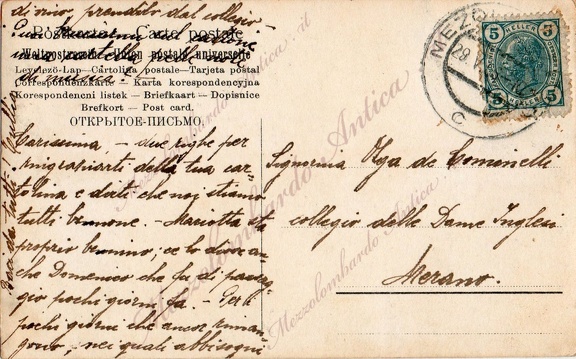 di uno prenderlo dal collegio
Postkarte - Carte postale
Weltpostverein - Union postale universelle
Levelező-Lap - Cartolina postale - Tarjeta postal
Correspondenzkarte - Karta korespondencyjna
Korespondenční lístek - Briefkaart - Dopisnice
Brefkort - Post card.
ОТКРЫТОЕ-ПИСЬМО.
Carissima, - due righe per
ringraziarti della tua car-
tolina e dirti che noi stiamo
tutti benone. - Mariotta sta
proprio benino, ce lo disse an-
che Domenico che fu di passeg-
gio pochi giorni fa. - Per i
pochi giorni che ancor riman-
gono, nei quali abbisogni
Baci da tutti
Signorina Olga de Cominelli
collegio delle Dame Inglesi
Merano.
MEZO
29
5 HELLER 5
5 5
Mezzolombardo Antica
Mezzolombardo Antica.it